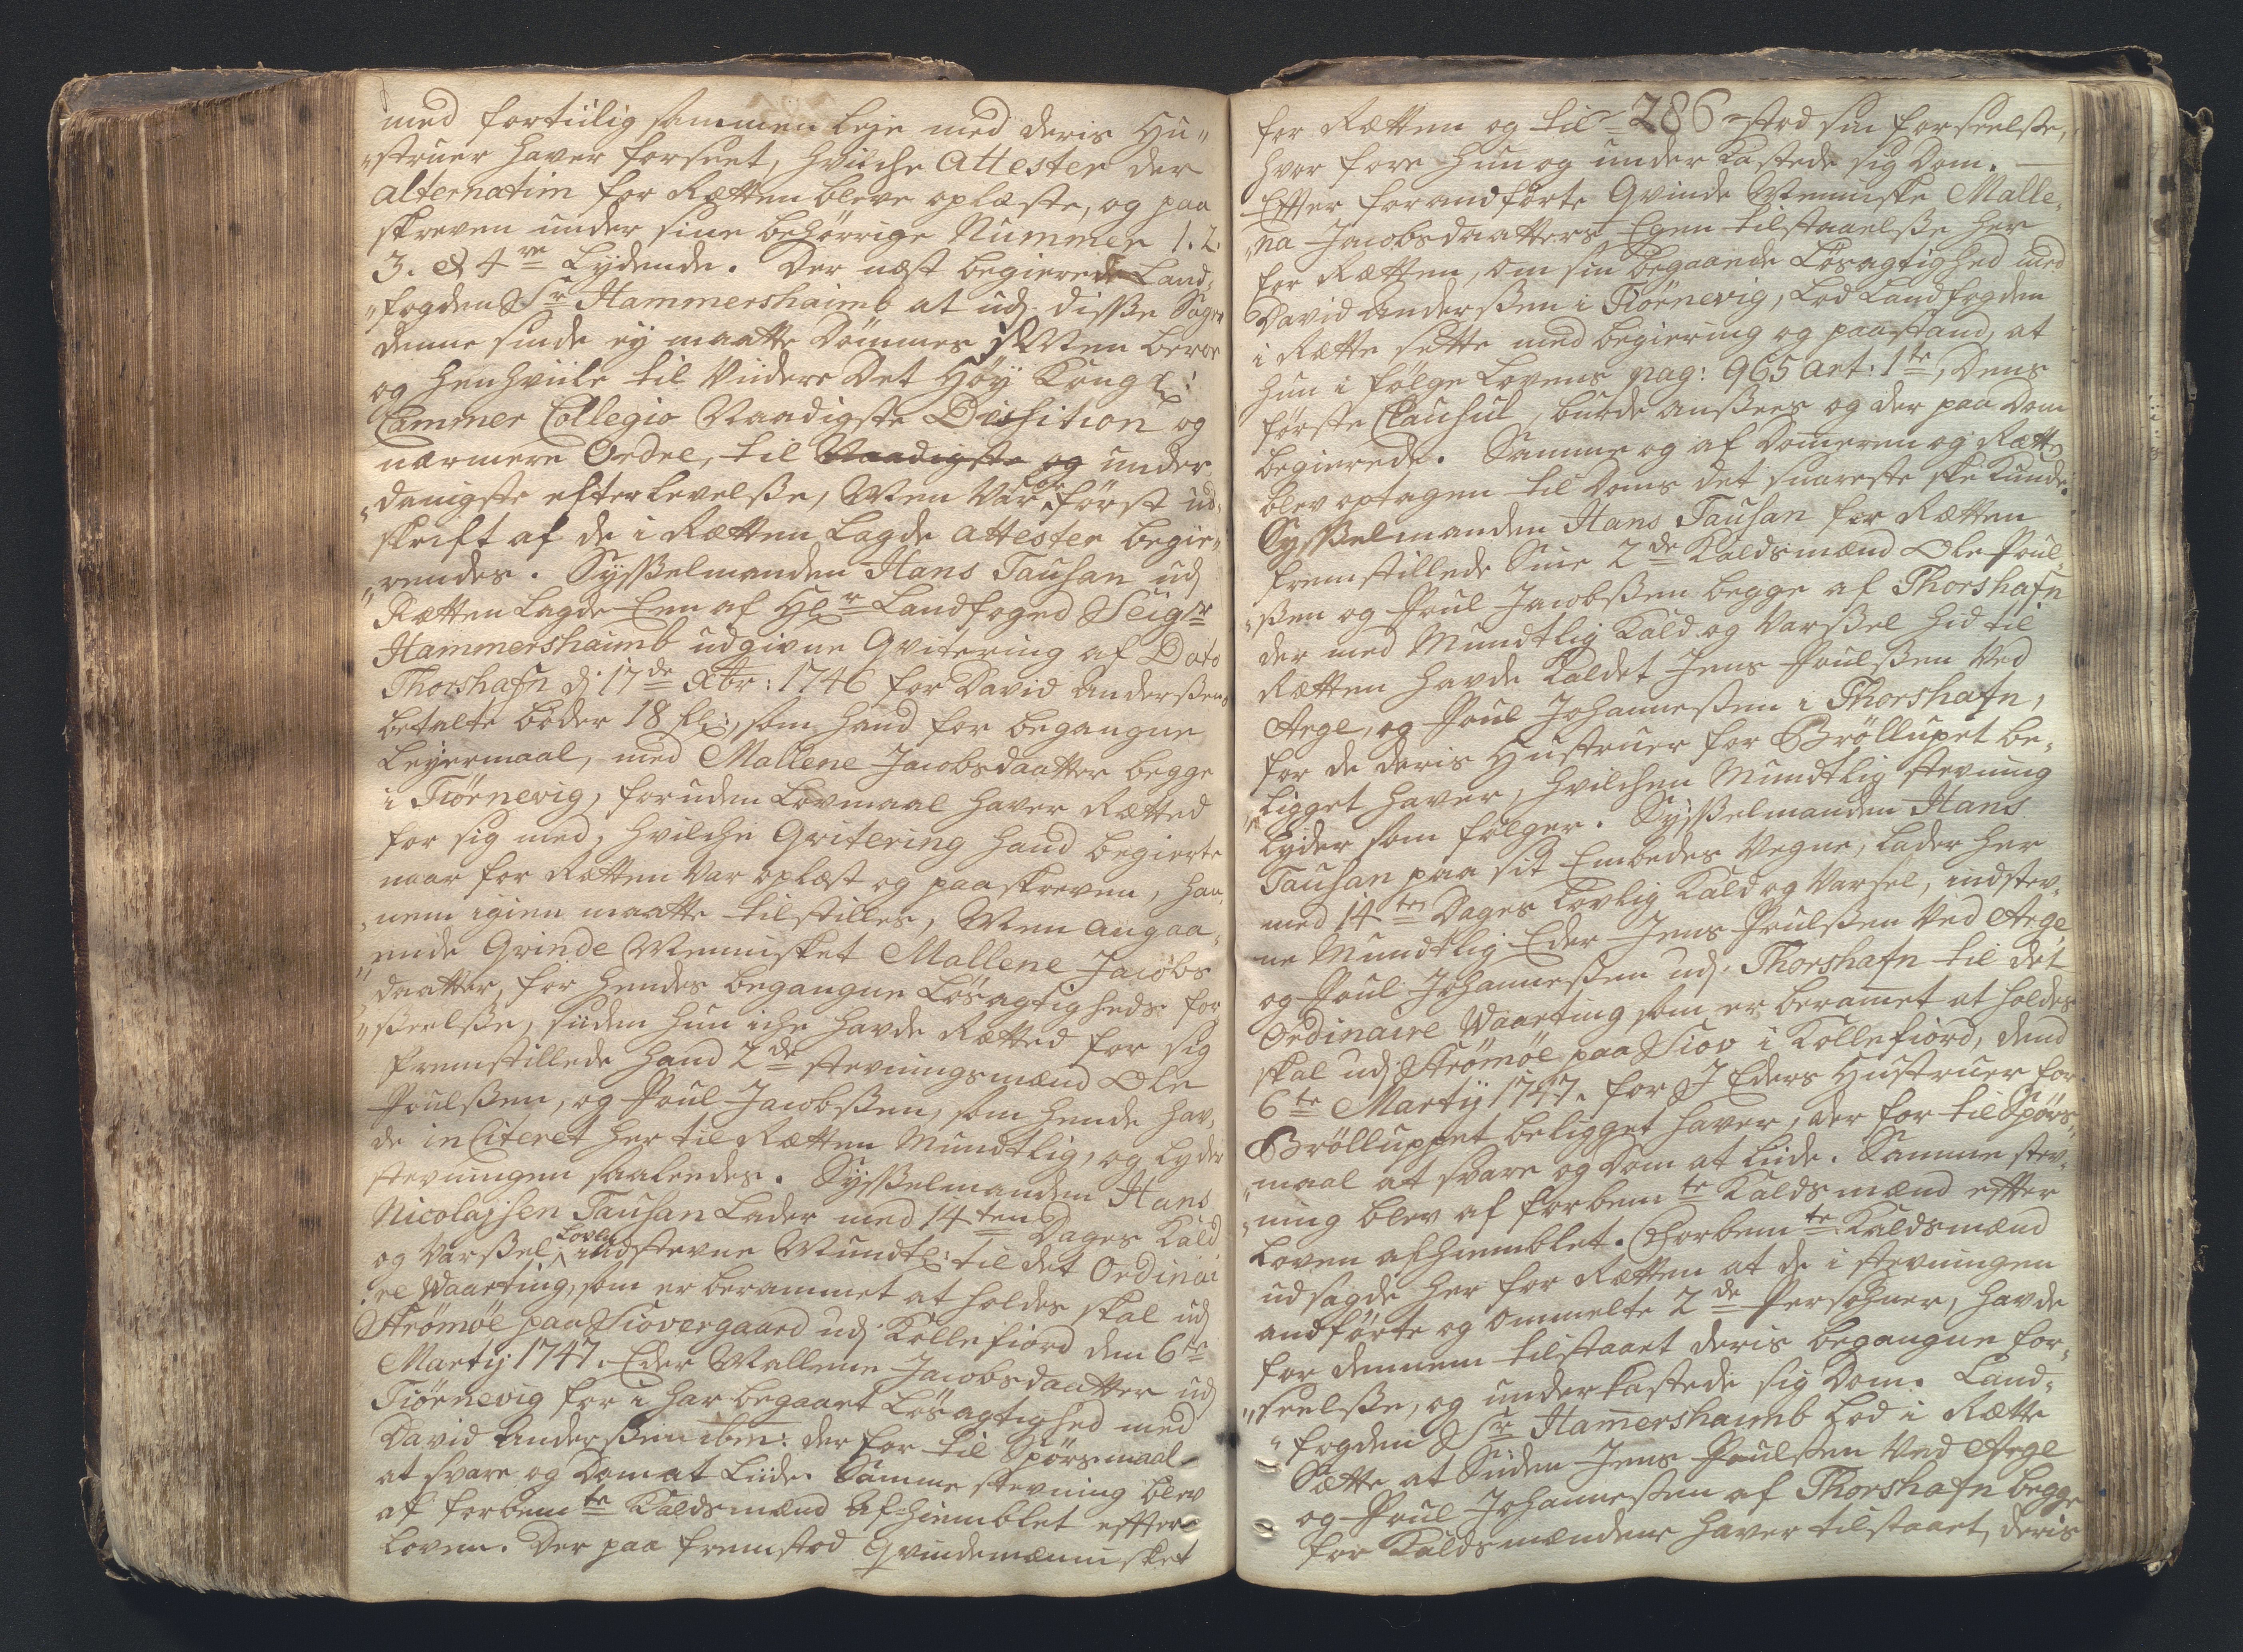 med fortiilig sammen leje med deris Hu„
„struer haver forseet, hvilche Attester der
alternatim for Rætten bleve oplæste, og paa
skreven under sine behørrige Nummer 1. 2.
3. & 4re Lydende. Der næst begierede Land„
„fogden Sr Hammershaimb at udj disse Sager
denne sinde ej maatte Dømmes Men beroe
og henhviile til Viidere Det Høy Kongl:
Cammer Collegio Naadigste Disposition og
nærmere Ordre, til Naadigste og under
„danigste efterlevelsse, Men Var først ud„
skrift af de i Rætten Lagde Attester begie„
„rendes. Sysselmanden Hans Tausan udj
Rætten Lagde Een af Hr Landfoged Seigr
Hammershaimb udgivne Qvitering af Dato
Thorshafn dj 17de Xbr: 1746 for David Anderssens
betalte bøder 18 fl:, som hand for begangne
Leyermaal, med Mallene Jacobsdaatter begge
i Tiørnevig, foruden Lovmaal haver Rætted
for sig med, hvilche Qvitering hand begierte
naar for Rætten Var oplæst og paaskreven, han„
„nem igien maatte tilstilles, Men angaa„
„ende Qvinde Mennisket Mallene Jacobs
„daatter, for hendes begangne Løsagtigheds for„
„seelsse, siiden hun iche havde Rætted for sig
fremstillede hand 2de stevningsmænd Ole
Poulssen, og Poul Jacobssen, som hende hav„
de inCiteret her til Rætten Mundtlig, og lyder
stevningen saaledes. Sysselmanden Hans
Nicolajsen Tausan Lader med 14ten Dages Kald
og Varssel Lovlig indstevne Mundtl: til det Ordinai
„re Vaarting, som er berammet at holdes skal udj
Strømøe paa Siovergaard udj Kollefiord den 6te
Martij 1747. Eder Mallene Jacobsdaatter udj
Tiørnevig for i har begaaet Løsagtighed med
David Anderssen ibm: der for til Spørsmaal
at svare og Dom at Liide. Samme stevning blev
af forbemte Kaldsmænd Afhiemblet effter
Loven. Der paa fremstod Qvindemennisket
for Rætten og til 286 stod sin forseelsse,
hvor fore hun og underkastede sig Dom.
Effter forandførte Qvinde Menniske Malle„
„na Jacobsdaatters Egen tilstaaelsse her
for Rætten, om sin begaaende Løsagtighed med
David Anderssen i Tiørnevig, Lod Landfogden
i Rætte sette med begiering og paastand, at
hun i følge Lovens pag: 965 Art: 1te, Dens
første Clausul, burde ansees og der paa Dom
begierede. Samme og af Dommeren og Rætten
blev optagen til Doms det snareste skee Kunde.
Sysselmanden Hans Tausan for Rætten
fremstillede Sine 2de Kaldsmænd Ole Poul„
„ssen og Poul Jacobssen begge af Thorshafn
der med Mundtlig Kald og Varssel hid til
Rætten havde Kaldet Jens Poulssen Ved
Arge, og Poul Johannessen i Thorshafn,
for de deris Hustruer for Brøllupet be„
„ligget haver, hvilchen Mundtlig stevning
Lyder som følger. Sysselmanden Hans
Tausan paa sit Embedes Vegne, lader her
med 14ten Dages Lovlig Kald og Varsel, indstev„
ne Mundtlig Eder Jens Poulssen Ved Arge,
og Poul Johannessen udj Thorshafn til det
Ordinaire Vaarting som er berammet at holdes
skal udj Strømøe paa Siov i Kollefiord, dend
6te Martij 1747. for I Eders Hustruer for
Brølluppet beligget haver, der for til Spørs„
„maal at svare og Dom at Liide. Samme stev„
„ning blev af forbemte Kaldsmænd effter
Loven afhiemblet. Forbemte Kaldsmænd
udsagde her for Rætten at de i stevningen
andførte og ommelte 2de Persohner, havde
for dennem tilstaaet deris begangne for„
„seelsse, og underkastede sig Dom. Land„
„fogden Sr Hamershaimb Lod i Rætte
Sætte at Siiden Jens Poulssen Ved Arge
og Poul Johannessen af Thorshafn begge
for Kaldsmændene haver tilstaaet, deris